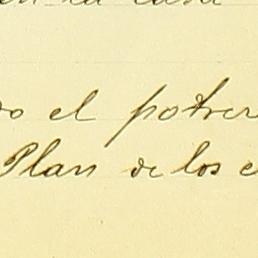 en la casa
do el potrer
Plan de los e